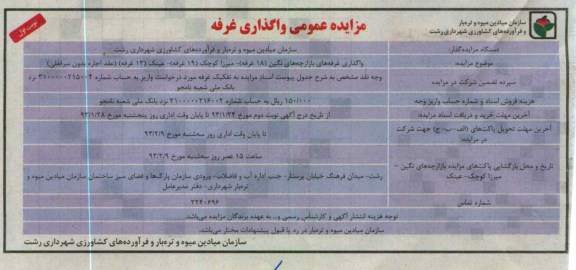 نوبت اول
مزایده عمومی واگذاری غرفه
سازمان میادین میوه و تره‌بار
و فرآورده‌های کشاورزی شهرداری رشت
دستگاه مزایده‌گذار: سازمان میادین میوه و تره‌بار و فرآورده‌های کشاورزی شهرداری رشت
موضوع مزایده: واگذاری غرفه‌های بازارچه‌های نگین (۱۸ غرفه)- میرزا کوچک (۱۹ غرفه)- عینک (۱۲ غرفه) (عقد اجاره بدون سرقفلی)
سپرده تضمین شرکت در مزایده: وجه نقد مشخص به شرح جدول پیوست اسناد مزایده به تفکیک غرفه مورد درخواست واریز به حساب شماره ۳۱۰۰۰۰۰۲۱۵۰۰۲ نزد
بانک ملی شعبه نامجو
هزینه فروش اسناد و شماره حساب واریز وجه: ۱۵۰/۱۰۰ ریال به حساب شماره ۳۱۰۰۰۰۰۲۱۶۰۰۲ نزد بانک ملی شعبه نامجو
آخرین مهلت خرید و دریافت اسناد مزایده: از تاریخ درج آگهی نوبت دوم مورخ ۹۳/۱/۲۴ تا پایان وقت اداری روز پنجشنبه مورخ ۹۳/۱/۲۸
آخرین مهلت تحویل پاکت‌های (الف-ب-ج) جهت شرکت
در مزایده: تا پایان وقت اداری روز سه‌شنبه مورخ ۹۳/۲/۹
تاریخ و محل بازگشایی پاکت‌های مزایده بازارچه‌های نگین -
میرزا کوچک- عینک
ساعت ۱۵ عصر روز سه‌شنبه مورخ ۹۳/۲/۹
رشت- میدان فرهنگ خیابان پرستار- جنب اداره آب و فاضلاب- ورودی سازمان پارک‌ها و فضای سبز ساختمان سازمان میادین میوه و
تره‌بار شهرداری- دفتر مدیرعامل
شماره تماس: ۳۲۴۰۶۹۶
توجه هزینه انتشار آگهی و کارشناس رسمی و.. به عهده برندگان مزایده می‌باشد.
سازمان میادین میوه و تره‌بار در رد یا قبول پیشنهادات مختار می‌باشد.
سازمان میادین میوه و تره‌بار و فرآورده‌های کشاورزی شهرداری رشت